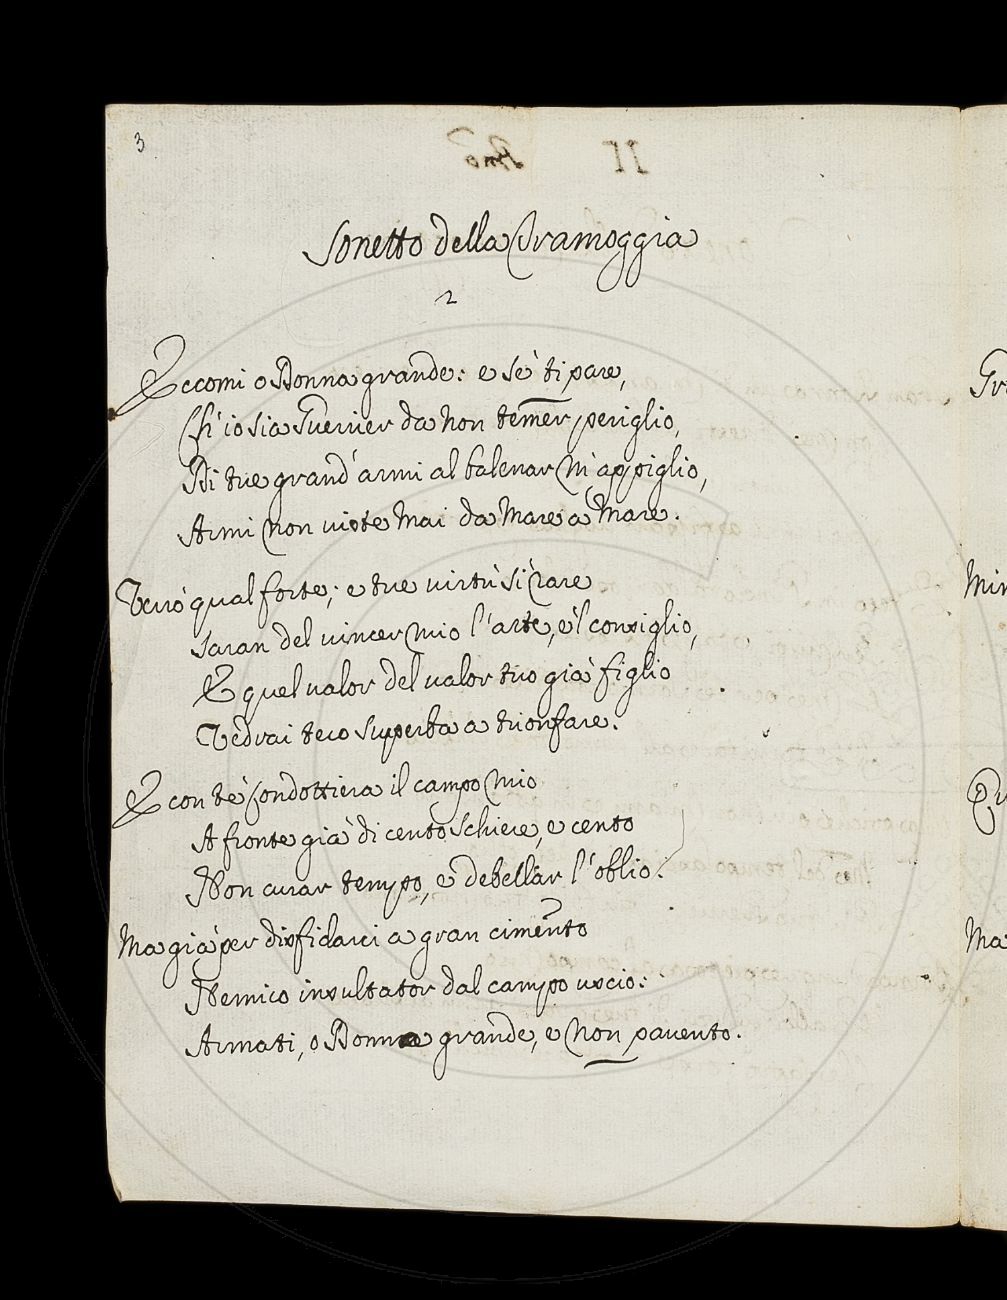 3
Sonetto della Tramoggia
2
Eccomi o Donna grande: e sè ti pare,
Ch'io sia Guerrier da non temer periglio,
Di tue grand'armi al balenar m'appiglio,
Armi non viste mai da Mare à Mare.
Verrò qual forte; e tue virtù sì rare
Saran del vincer mio l'arte, e'l consiglio,
E quel valor del valor tuo già figlio
Vedrai teco superba a trionfare.
E con tè condottiera il campo mio
A fronte già di cento schiere, e cento
Non curar tempo, e debellar l'oblio.
Ma già per disfidarci a gran cimento
Nemico insultator dal campo uscio:
Armati, o Donna grande, e non pavento.